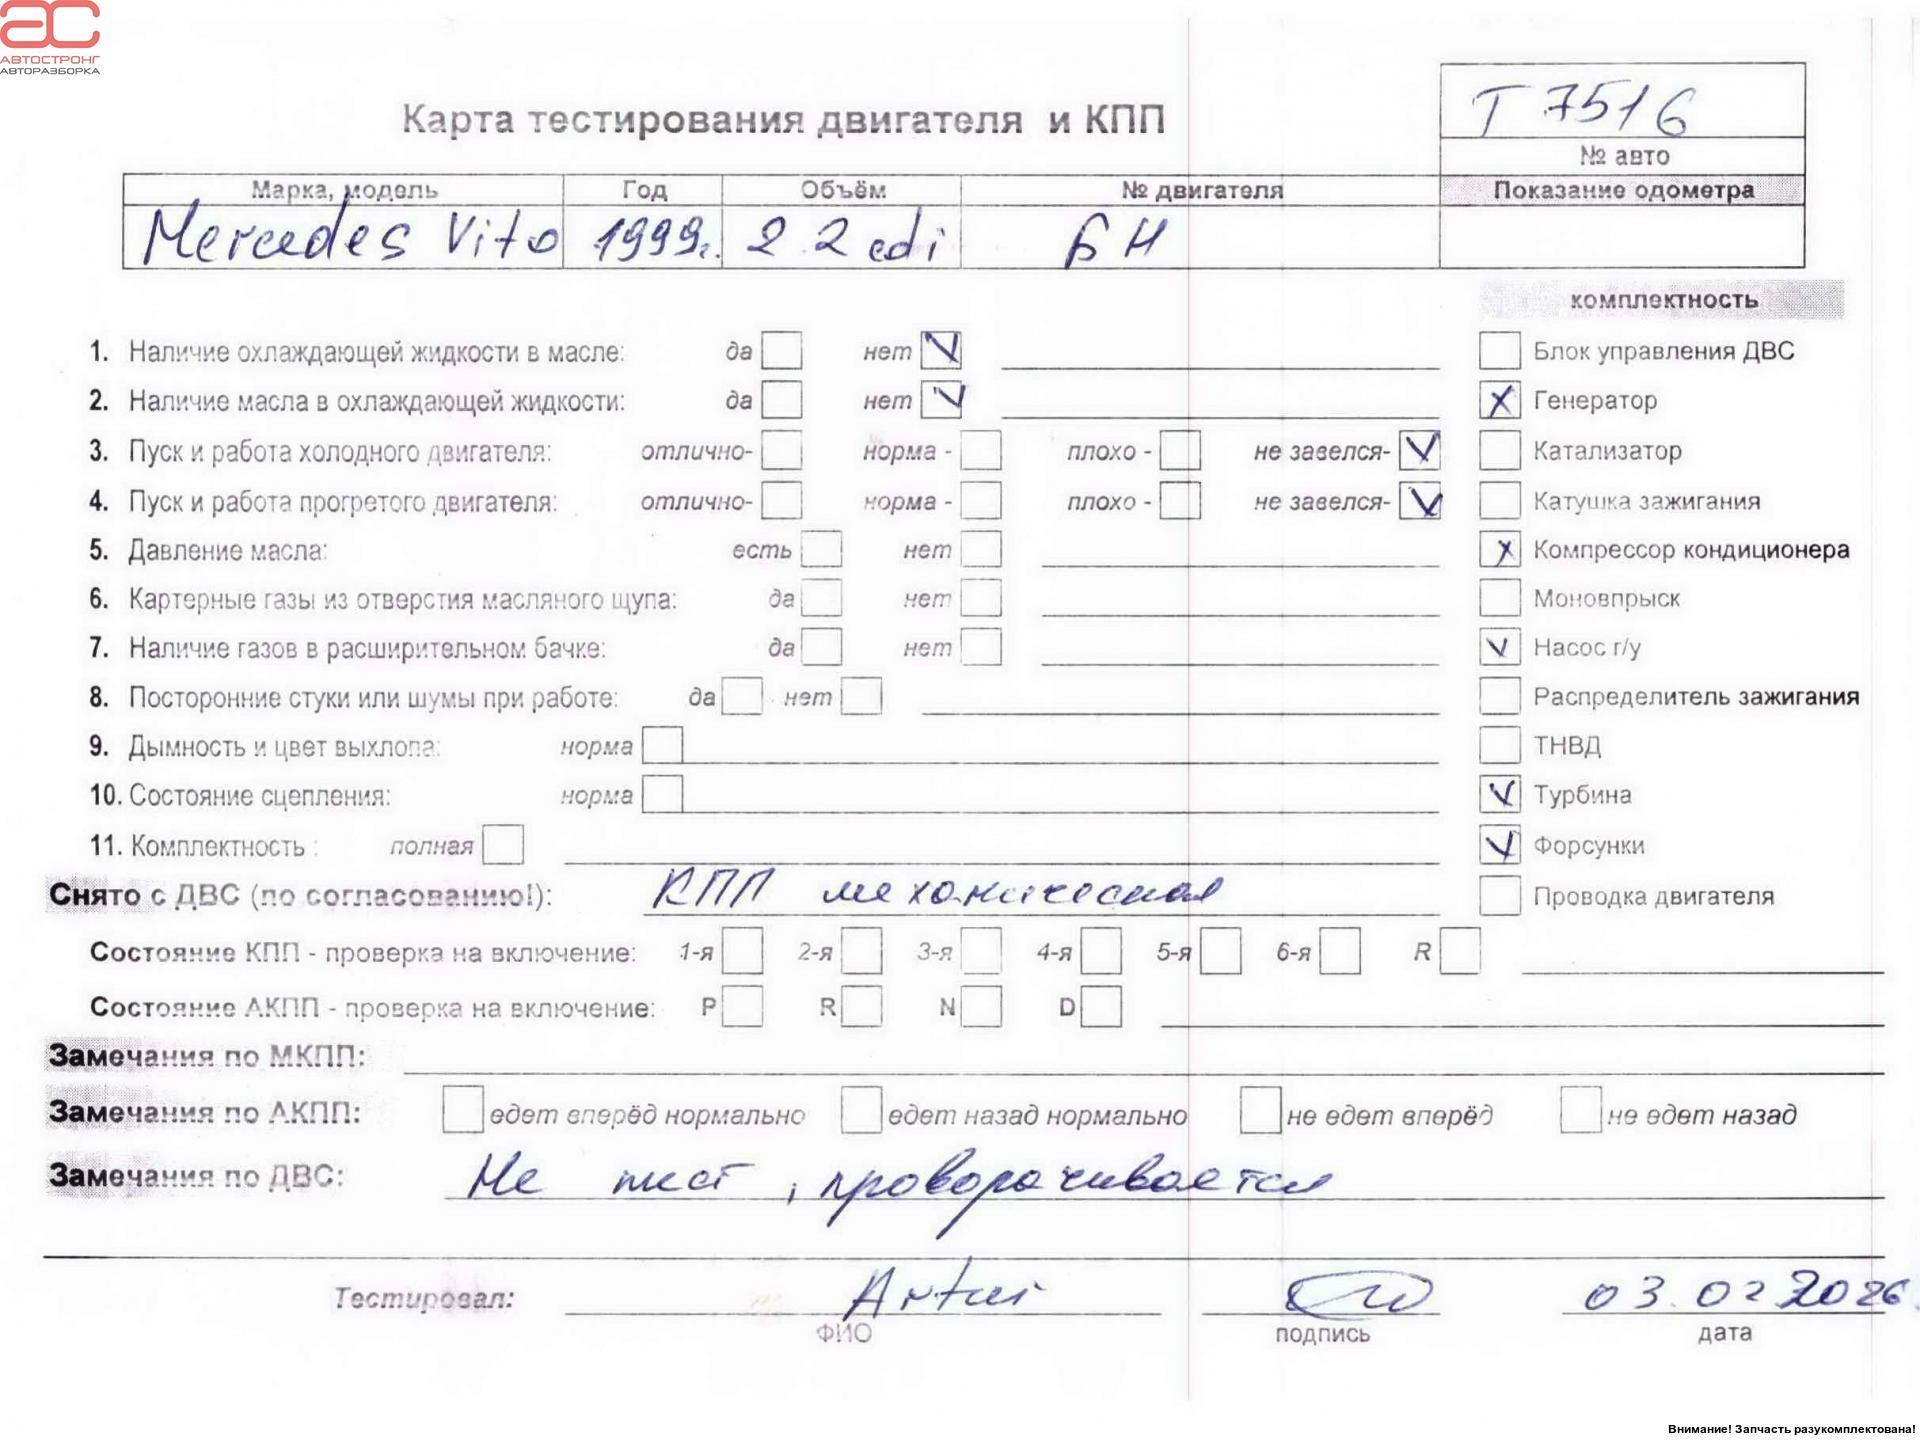 АВТОСТРОНГ
АВТОРАЗБОРКА
Т 7516
№ авто
Карта тестирования двигателя и КПП
Марка, модель Год Объём № двигателя Показание одометра
Mercedes Vito 1999г. 2.2 cdi БН
комплектность
1. Наличие охлаждающей жидкости в масле: да нет Блок управления ДВС
2. Наличие масла в охлаждающей жидкости: да нет Генератор
3. Пуск и работа холодного двигателя: отлично- норма - плохо - не завелся- Катализатор
4. Пуск и работа прогретого двигателя: отлично- норма - плохо - не завелся- Катушка зажигания
5. Давление масла: есть нет Компрессор кондиционера
6. Картерные газы из отверстия масляного щупа: да нет Моновпрыск
7. Наличие газов в расширительном бачке: да нет Насос г/у
8. Посторонние стуки или шумы при работе: да нет Распределитель зажигания
9. Дымность и цвет выхлопа: норма ТНВД
10. Состояние сцепления: норма Турбина
11. Комплектность : полная Форсунки
Снято с ДВС (по согласованию!): КПП механическая Проводка двигателя
Состояние КПП - проверка на включение: 1-я 2-я 3-я 4-я 5-я 6-я R
Состояние АКПП - проверка на включение: P R N D
Замечания по МКПП:
Замечания по АКПП: едет вперёд нормально едет назад нормально не едет вперёд не едет назад
Замечания по ДВС: Не , проворачивается
Тестировал: Artur 03.02.2026
ФИО подпись дата
Внимание! Запчасть разукомплектована!